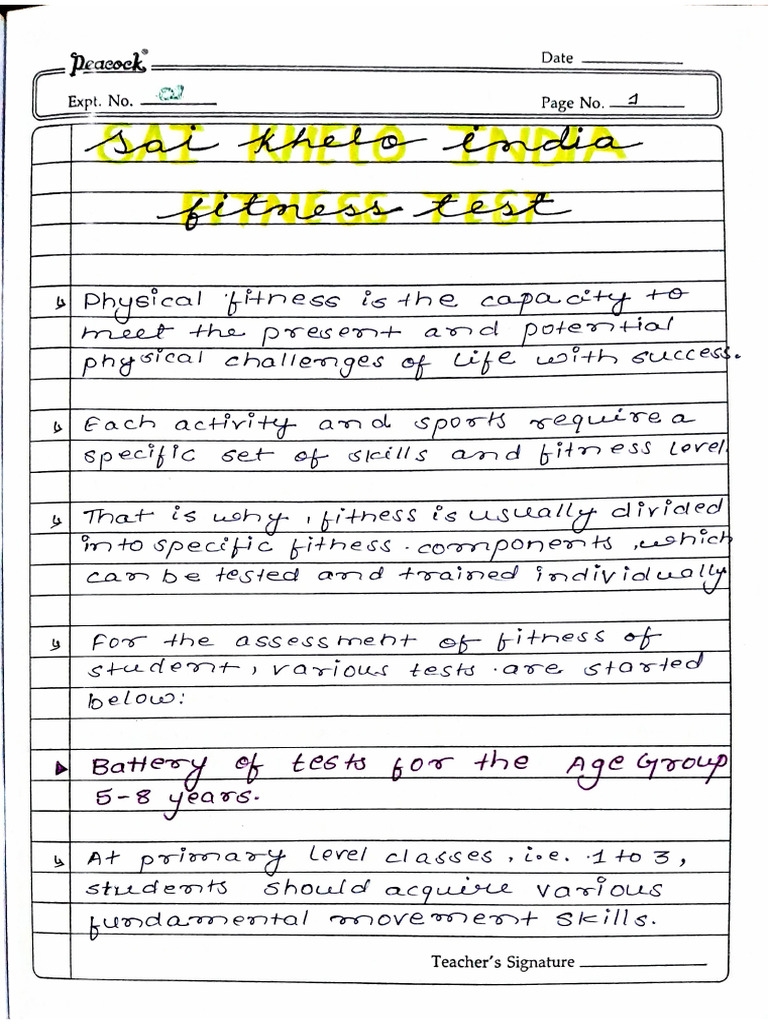 Peacock®
Date
Expt. No. 02
Page No. 1
SAI KHELO INDIA
Sai Khelo india
FITNESS TEST
fitness test
↳ Physical fitness is the capacity to
meet the present and potential
physical challenges of life with success.
↳ Each activity and sports require a
specific set of skills and fitness level.
↳ That is why, fitness is usually divided
into specific fitness components, which
can be tested and trained individually
↳ For the assessment of fitness of
student, various tests are started
below:
▶ Battery of tests for the Age Group
5-8 years.
↳ At primary level classes, i.e. 1 to 3,
students should acquire various
fundamental movement skills.
Teacher's Signature